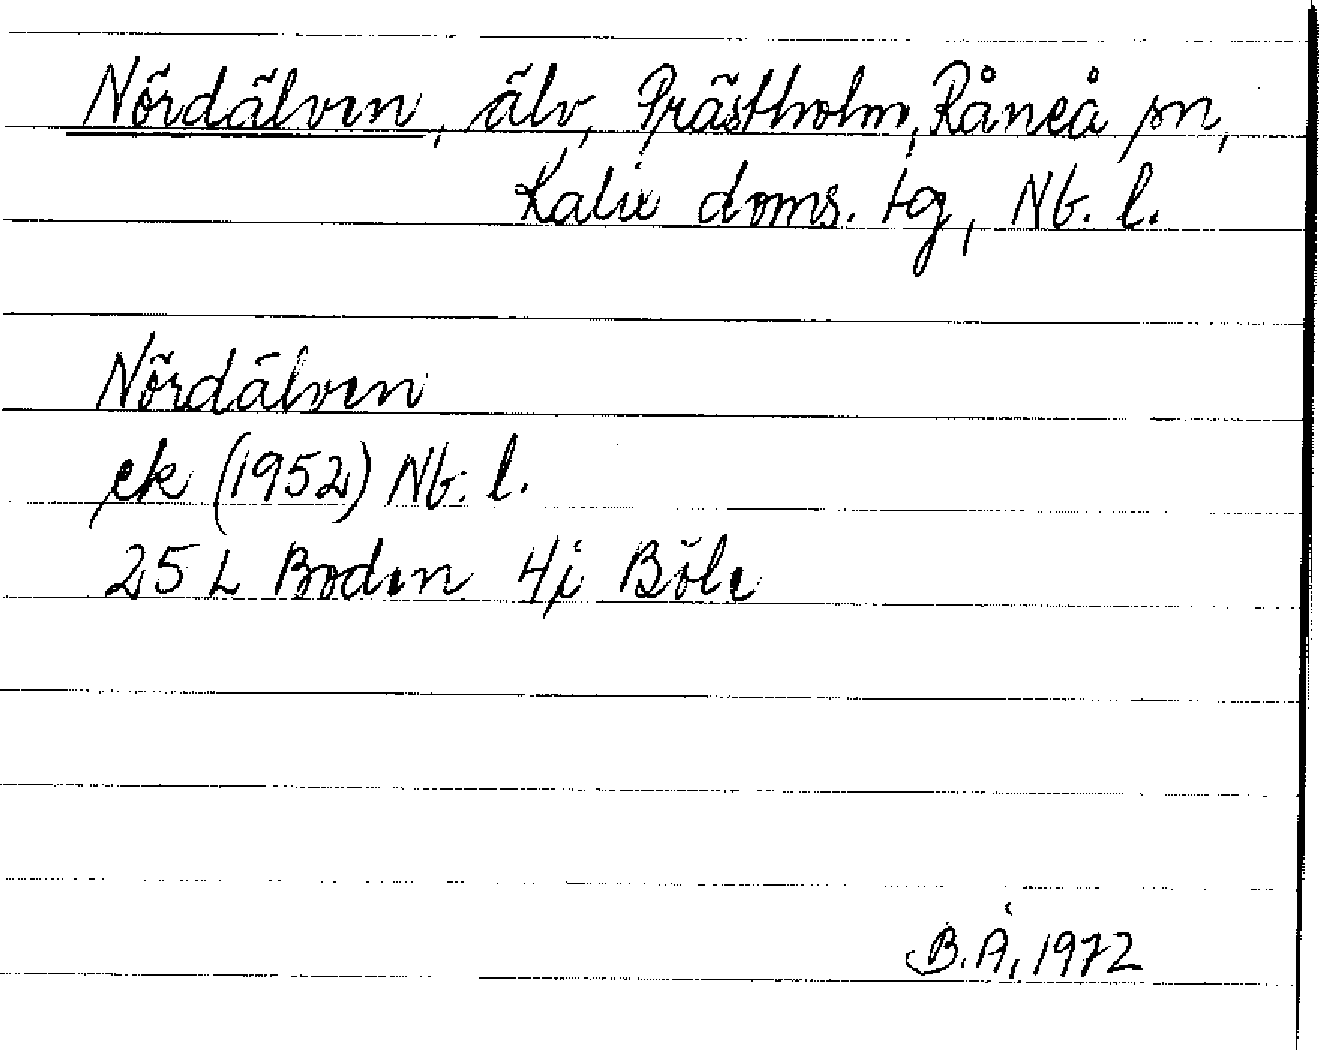 Nördälven, älv, Prästholm, Råneå sn,
Kalix doms. tg, Nb. l.
Nördälven
ek (1952) Nb. l.
25 L Boden 4i Böle
B.Å, 1972